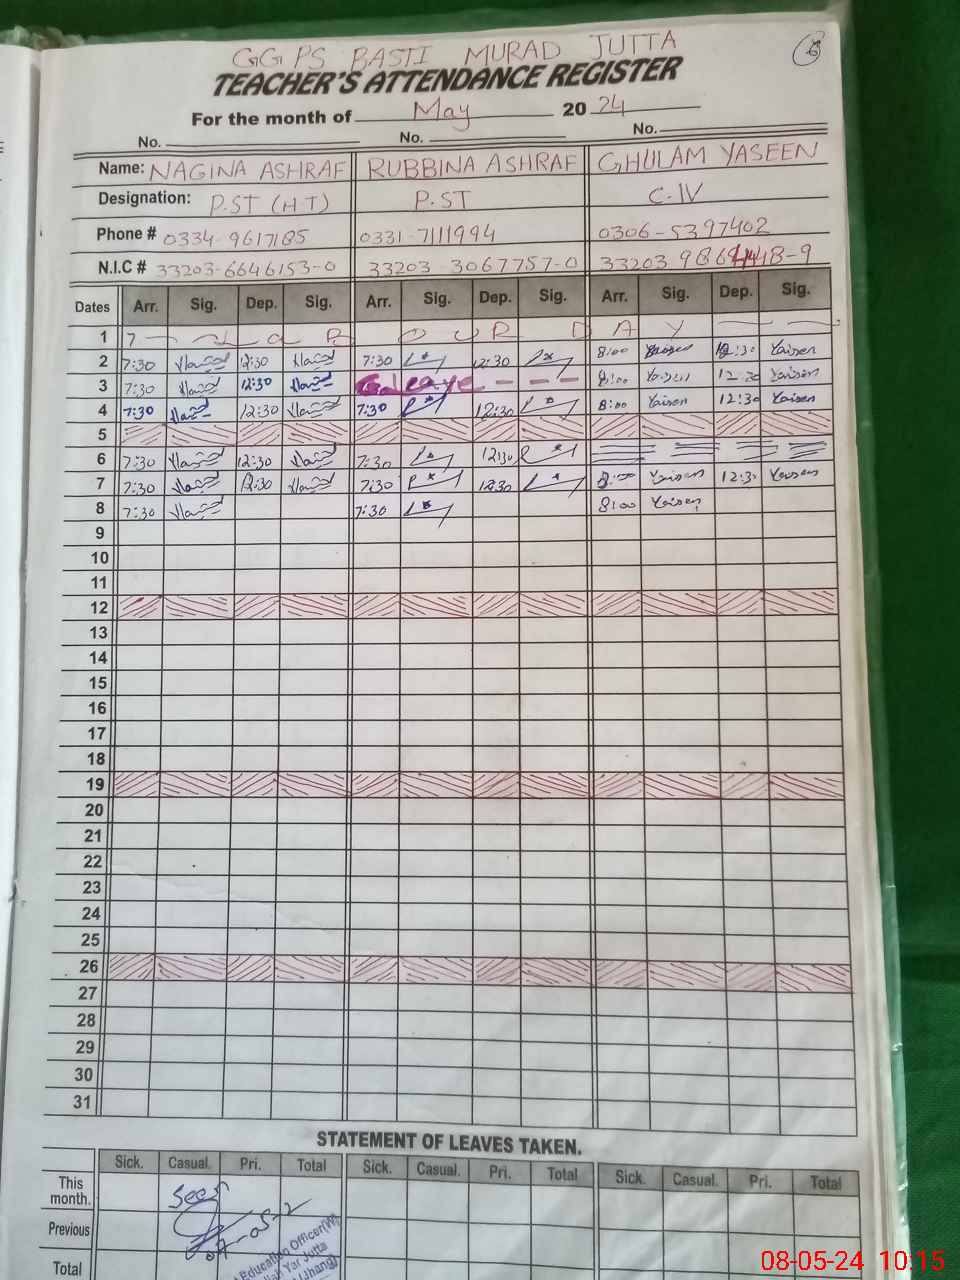 GGPS BASTI MURAD JUTTA
6
TEACHER'S ATTENDANCE REGISTER
For the month of May 2024
No. No. No.
Name: NAGINA ASHRAF RUBBINA ASHRAF GHULAM YASEEN
Designation: P.ST (H.T) P.ST C.IV
Phone # 0334-9617185 0331-7111994 0306-5397402
N.I.C # 33203-6646153-0 33203-3067757-0
Dates Arr. Sig. Dep. Sig. Arr. Sig. Dep. Sig. Arr. Sig. Dep. Sig.
1 L a B O U R D A Y
2 7:30 12:30 7:30 12:30 8:00 Yaisen 12:30 Yaisen
3 7:30 12:30 C.Leave - - - 8:00 Yaisen 12:30 Yaisen
4 7:30 12:30 7:30 12:30 8:00 Yaisen 12:30 Yaisen
5
6 7:30 12:30 7:30 12:30
7 7:30 12:30 7:30 12:30 8:00 Yaisen 12:30 Yaisen
8 7:30 7:30 8:00 Yaisen
9
10
11
12
13
14
15
16
17
18
19
20
21
22
23
24
25
26
27
28
29
30
31
STATEMENT OF LEAVES TAKEN.
Sick. Casual. Pri. Total Sick. Casual. Pri. Total Sick. Casual. Pri. Total
This month.
Seen
Previous
Education Officer(W)
Yar Jutta
Total
(Jhang)
08-05-24 10:15